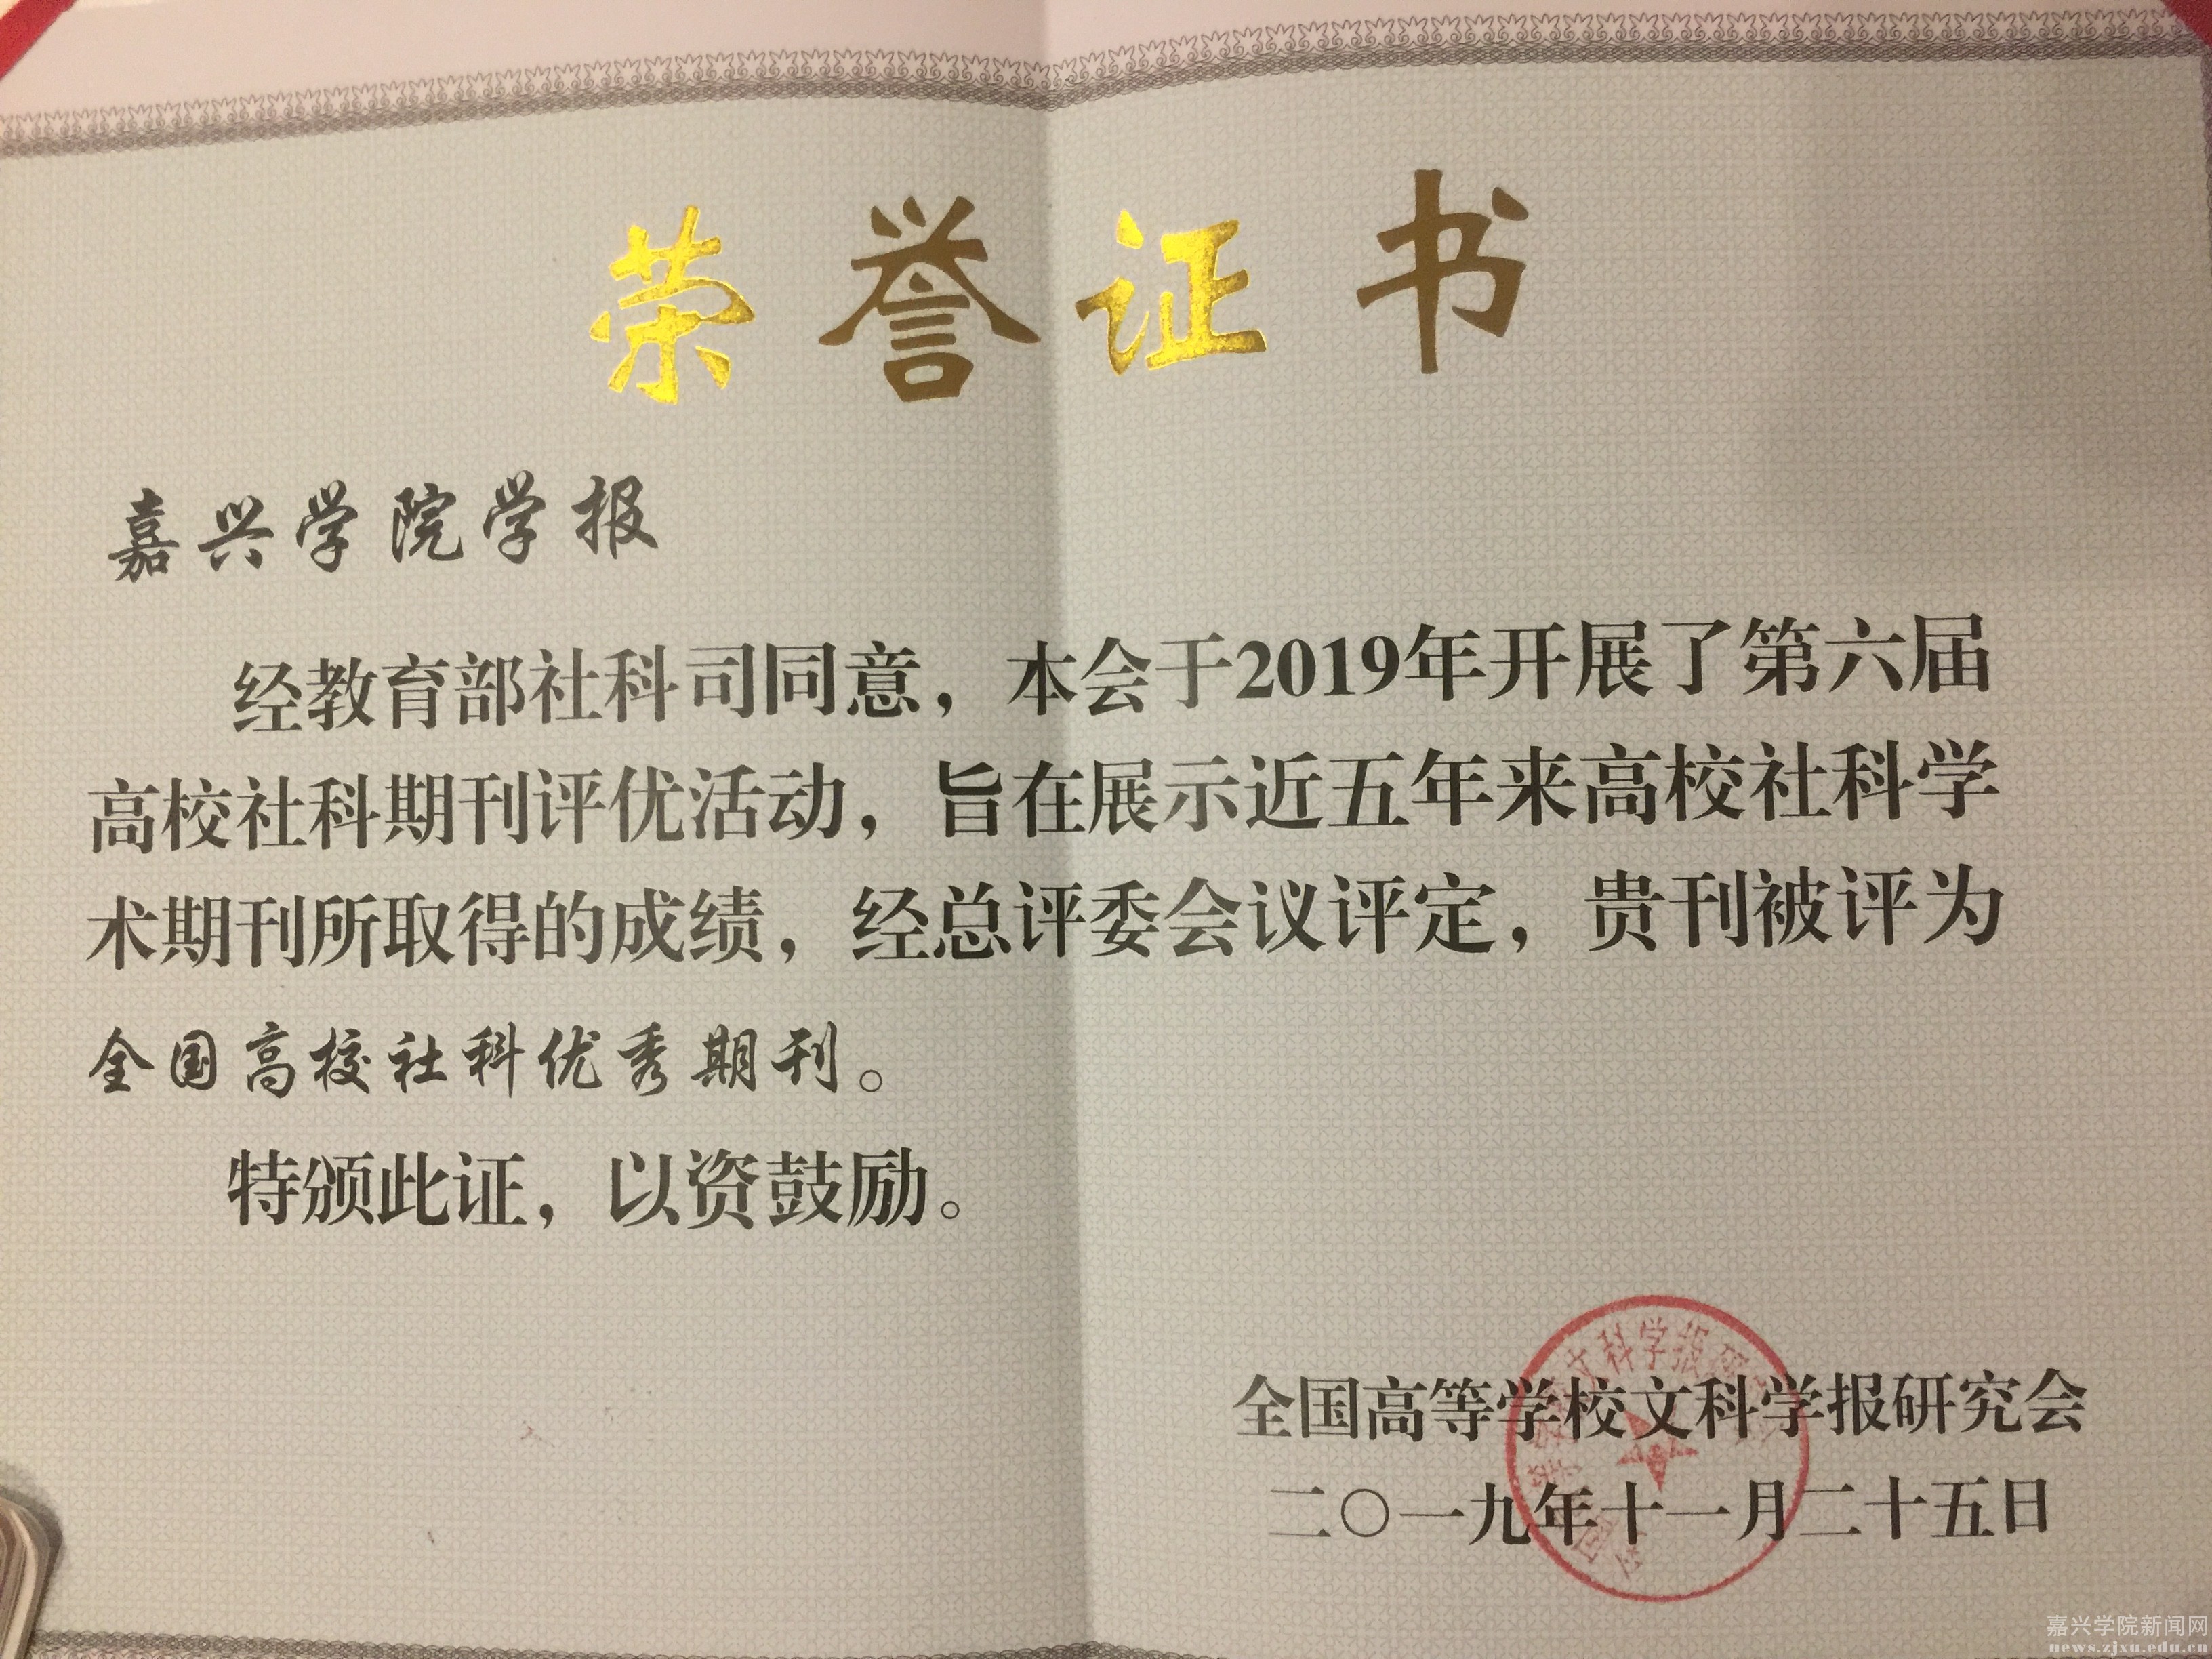 荣誉证书
嘉兴学院学报
经教育部社科司同意，本会于2019年开展了第六届
高校社科期刊评优活动，旨在展示近五年来高校社科学
术期刊所取得的成绩，经总评委会议评定，贵刊被评为
全国高校社科优秀期刊。
特颁此证，以资鼓励。
全国高等学校文科学报研究会
二〇一九年十一月二十五日
嘉兴学院新闻网
news.zjxu.edu.cn